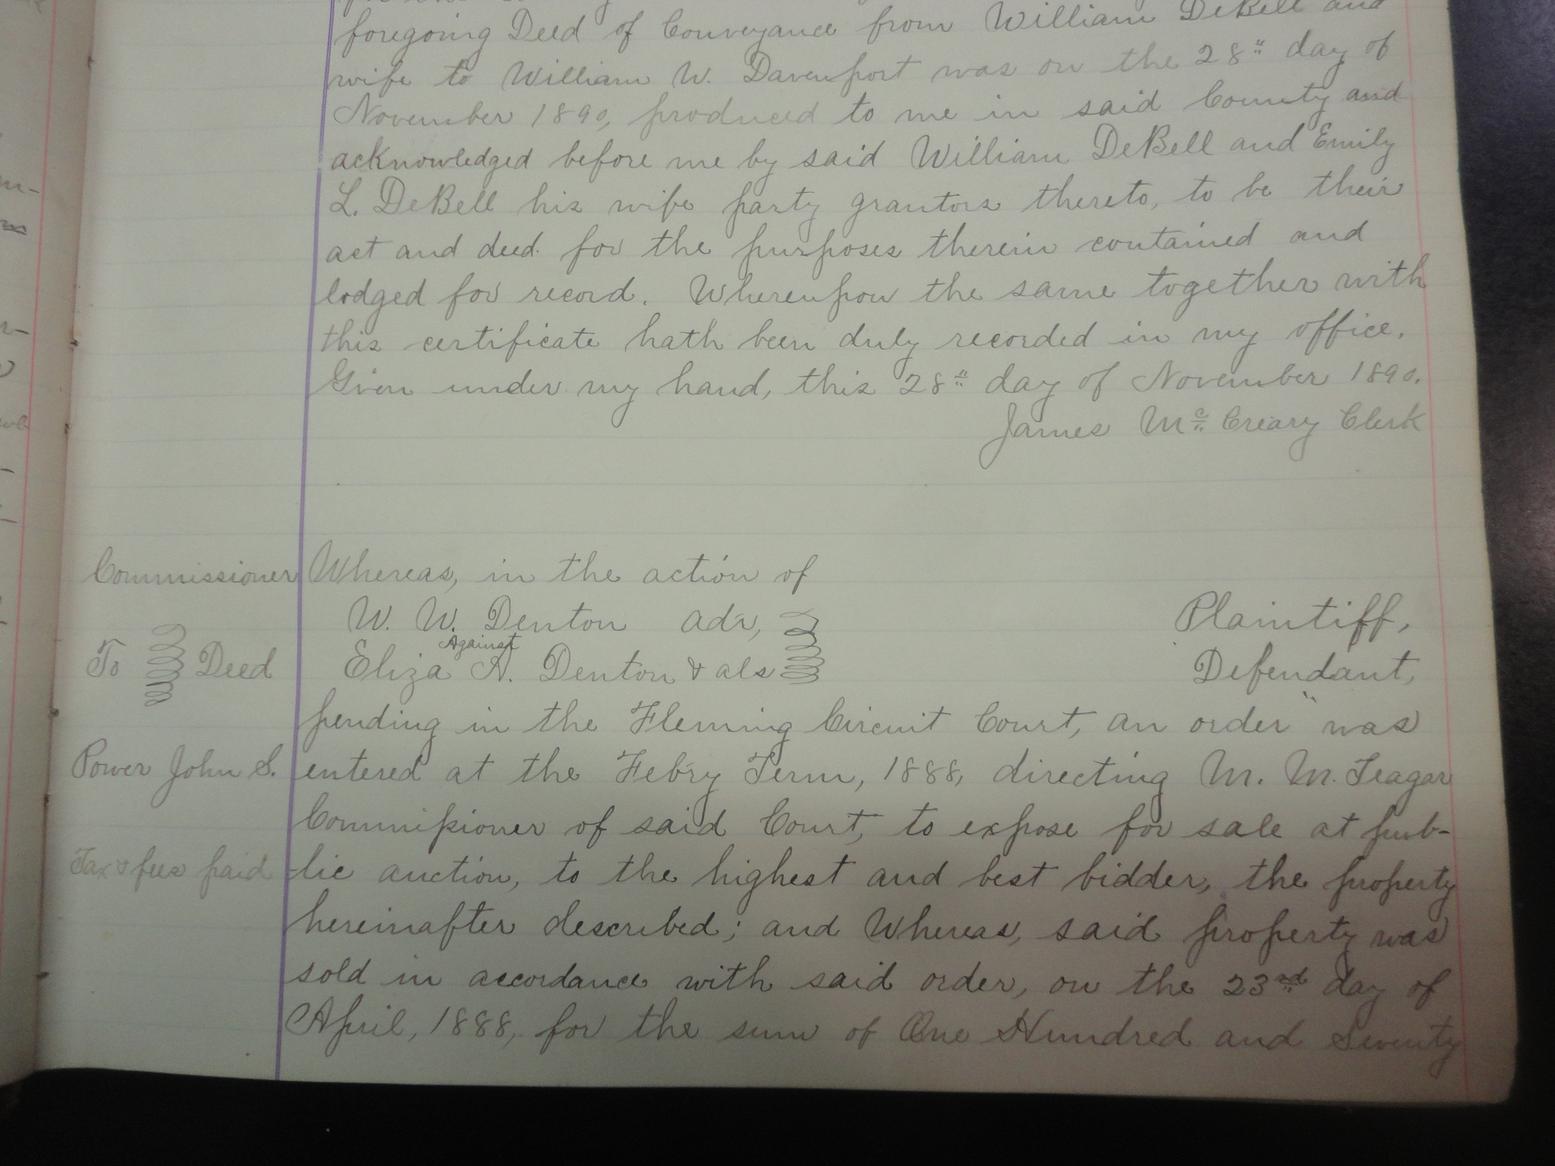 foregoing Deed of Conveyance from William DeBell and
wife to William W. Davenport was on the 28" day of
November 1890, produced to me in said County and
acknowledged before me by said William DeBell and Emily
L. DeBell his wife party grantors thereto, to be their
act and deed for the purposes therein contained and
lodged for record. Whereupon the same together with
this certificate hath been duly recorded in my office.
Given under my hand, this 28" day of November 1890.
James Mc Creary Clerk
Commissioner
To Deed
Power John S.
Tax & fees paid
Whereas, in the action of
W. W. Denton adr, Plaintiff,
Against
Eliza A. Denton & als Defendant,
pending in the Fleming Circuit Court, an order was
entered at the Febry Term, 1888, directing M. M. Teagar
Commissioner of said Court, to expose for sale at pub-
lic auction, to the highest and best bidder, the property
hereinafter described; and Whereas, said property was
sold in accordance with said order, on the 23rd day of
April, 1888, for the sum of One Hundred and Seventy